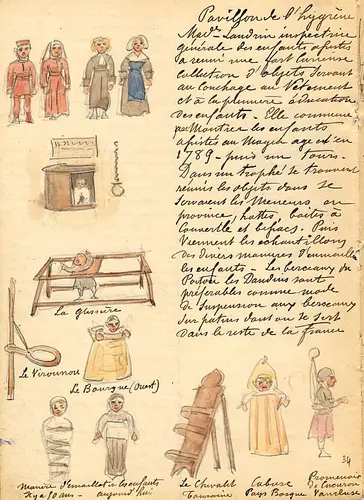 Pavillon de l'hygiène
Made Landrin inspectrice
générale des enfants assistés
a réuni une fort curieuse
collection d'objets servant
au couchage au vêtement
et à la première éducation
des enfants. Elle commence
par montrer les enfants
assistés au Moyen age et en
1789 - puis un Tour.
Dans un trophé se trouvent
réunis les objets dont se
servaient les Meneurs ou
province, hattes, boites à
couvercle et besaces. Puis
viennent les échantillons
des divers manières d'emmailloter
les enfants - Les berceaux du
Poitou les Dandins sont
préférables comme mode
de suspension aux berceaux
sur patins dont on se sert
dans le reste de la france
La glissoire
Le Virounou
Le Bourgne (Ouest)
Manière d'emmailloter les enfants
il y a 50 ans - aujourd'hui
Le Chevalet
Touraine
Cabuse
Pays Basque
Promenoir
de Cucuron
Vaucluse
34